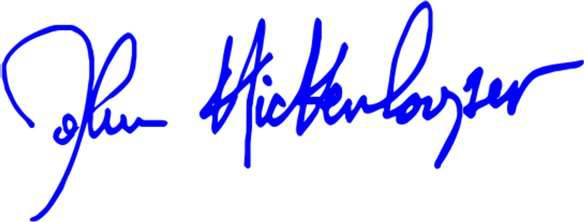 John Hickenlooper